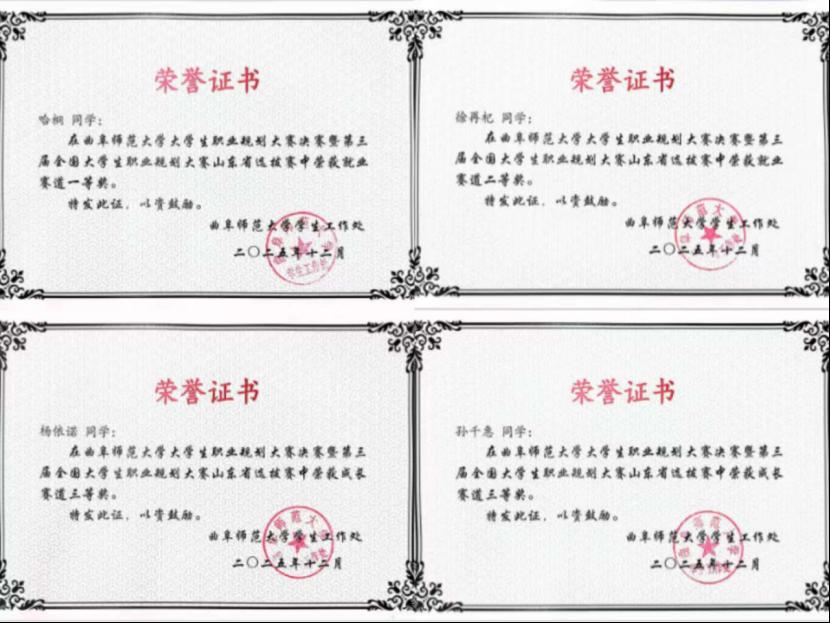 荣誉证书
哈桐 同学：
在曲阜师范大学大学生职业规划大赛决赛暨第三
届全国大学生职业规划大赛山东省选拔赛中荣获就业
赛道一等奖。
特发此证，以资鼓励。
曲阜师范大学学生工作处
二〇二五年十二月
荣誉证书
徐再杞 同学：
在曲阜师范大学大学生职业规划大赛决赛暨第三
届全国大学生职业规划大赛山东省选拔赛中荣获就业
赛道二等奖。
特发此证，以资鼓励。
曲阜师范大学学生工作处
二〇二五年十二月
荣誉证书
杨依诺 同学：
在曲阜师范大学大学生职业规划大赛决赛暨第三
届全国大学生职业规划大赛山东省选拔赛中荣获成长
赛道三等奖。
特发此证，以资鼓励。
曲阜师范大学学生工作处
二〇二五年十二月
荣誉证书
孙千惠 同学：
在曲阜师范大学大学生职业规划大赛决赛暨第三
届全国大学生职业规划大赛山东省选拔赛中荣获成长
赛道三等奖。
特发此证，以资鼓励。
曲阜师范大学学生工作处
二〇二五年十二月